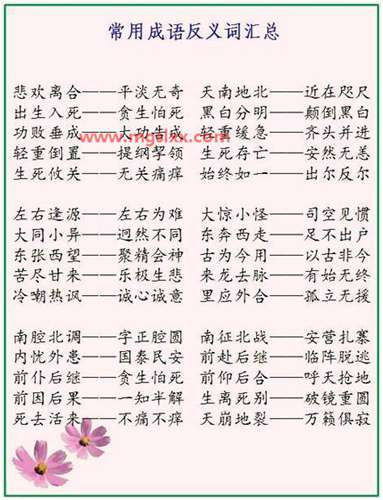 常用成语反义词汇总
悲欢离合——平淡无奇 天南地北——近在咫尺
出生入死——贪生怕死 黑白分明——颠倒黑白
功败垂成——大功告成 轻重缓急——齐头并进
www.mgslxx.com
轻重倒置——提纲挈领 生死存亡——安然无恙
生死攸关——无关痛痒 始终如一——出尔反尔
左右逢源——左右为难 大惊小怪——司空见惯
大同小异——迥然不同 东奔西走——足不出户
东张西望——聚精会神 古为今用——以古非今
苦尽甘来——乐极生悲 来龙去脉——有始无终
冷嘲热讽——诚心诚意 里应外合——孤立无援
南腔北调——字正腔圆 南征北战——安营扎寨
内忧外患——国泰民安 前赴后继——临阵脱逃
前仆后继——贪生怕死 前仰后合——呼天抢地
前因后果——一知半解 生离死别——破镜重圆
死去活来——不痛不痒 天崩地裂——万籁俱寂